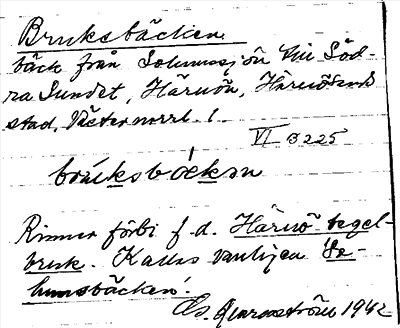 Bruksbäcken
bäck från Solumsjön till Söd-
ra Sundet, Härnön, Härnösands
stad, Västernorrl. l.
VI B 225
brúksbäckan
Rinner förbi f. d. Härnö tegel-
bruk. Kallas vanligen
bäcken!
1942